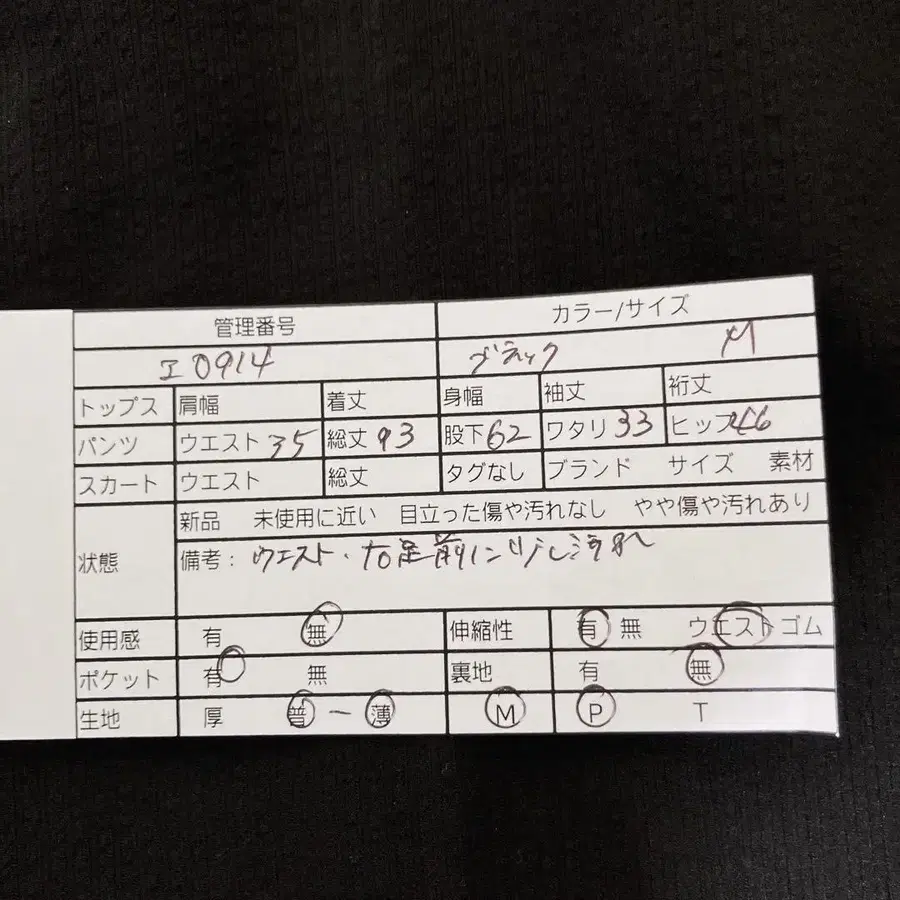 管理番号 カラー/サイズ
エ0914 ブラック M
トップス 肩幅 着丈 身幅 袖丈 裄丈
パンツ ウエスト 35 総丈 93 股下 62 ワタリ 33 ヒップ 46
スカート ウエスト 総丈 タグなし ブランド サイズ 素材
状態 新品 未使用に近い 目立った傷や汚れなし やや傷や汚れあり
備考: ウエスト・右足前に少し汚れ
使用感 有 無 伸縮性 有 無 ウエストゴム
ポケット 有 無 裏地 有 無
生地 厚 普 ー 薄 M P T